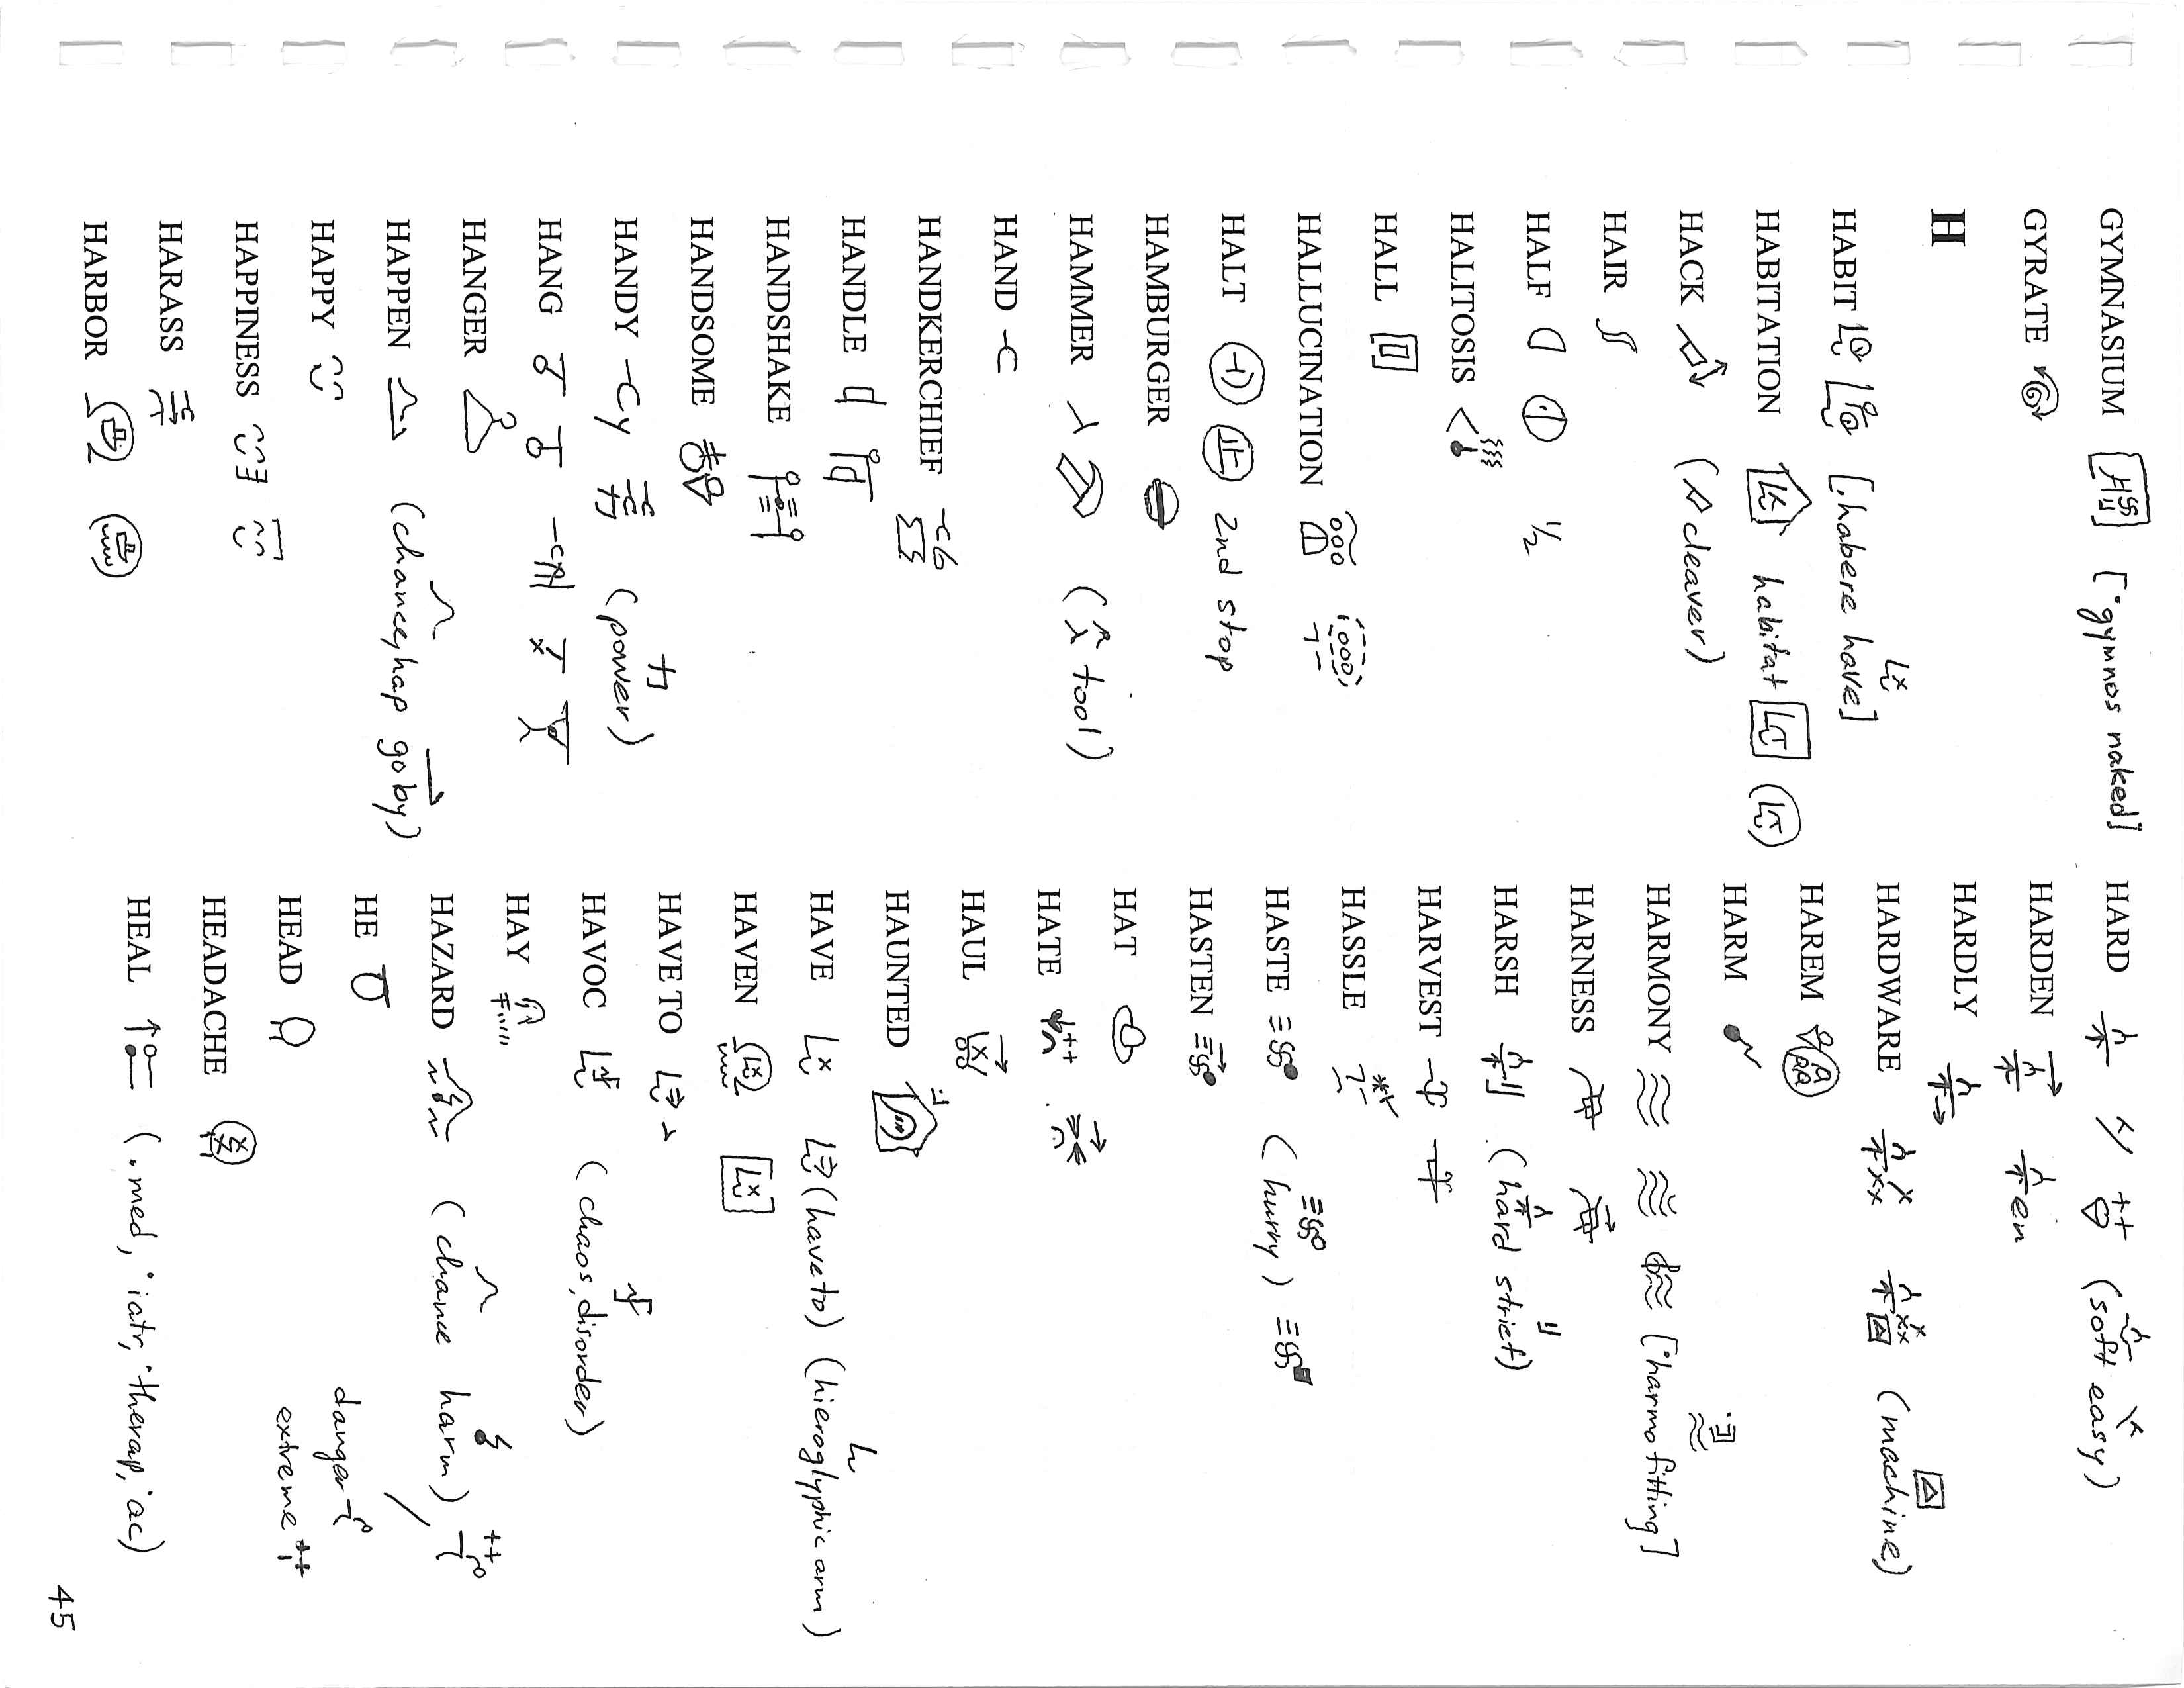 GYMNASIUM [˙gymnos naked]
GYRATE
H
HABIT [.habere have]
HABITATION habitat
HACK (cleaver)
HAIR
HALF 1/2
HALITOSIS
HALL
HALLUCINATION
HALT 2nd stop
HAMBURGER
HAMMER (tool)
HAND
HANDKERCHIEF
HANDLE
HANDSHAKE
HANDSOME
HANDY (power)
HANG
HANGER
HAPPEN (chance, hap go by)
HAPPY
HAPPINESS
HARASS
HARBOR
HARD (soft easy)
HARDEN en
HARDLY
HARDWARE (machine)
HAREM
HARM
HARMONY [˙harmo fitting]
HARNESS
HARSH (hard strict)
HARVEST
HASSLE
HASTE (hurry)
HASTEN
HAT
HATE
HAUL
HAUNTED
HAVE (have to) (hieroglyphic arm)
HAVEN
HAVE TO
HAVOC (chaos, disorder)
HAY
HAZARD (chance harm) /
HE danger
HEAD extreme ++
HEADACHE
HEAL (.med, ˙iatr, ˙therap, ˙ac)
45